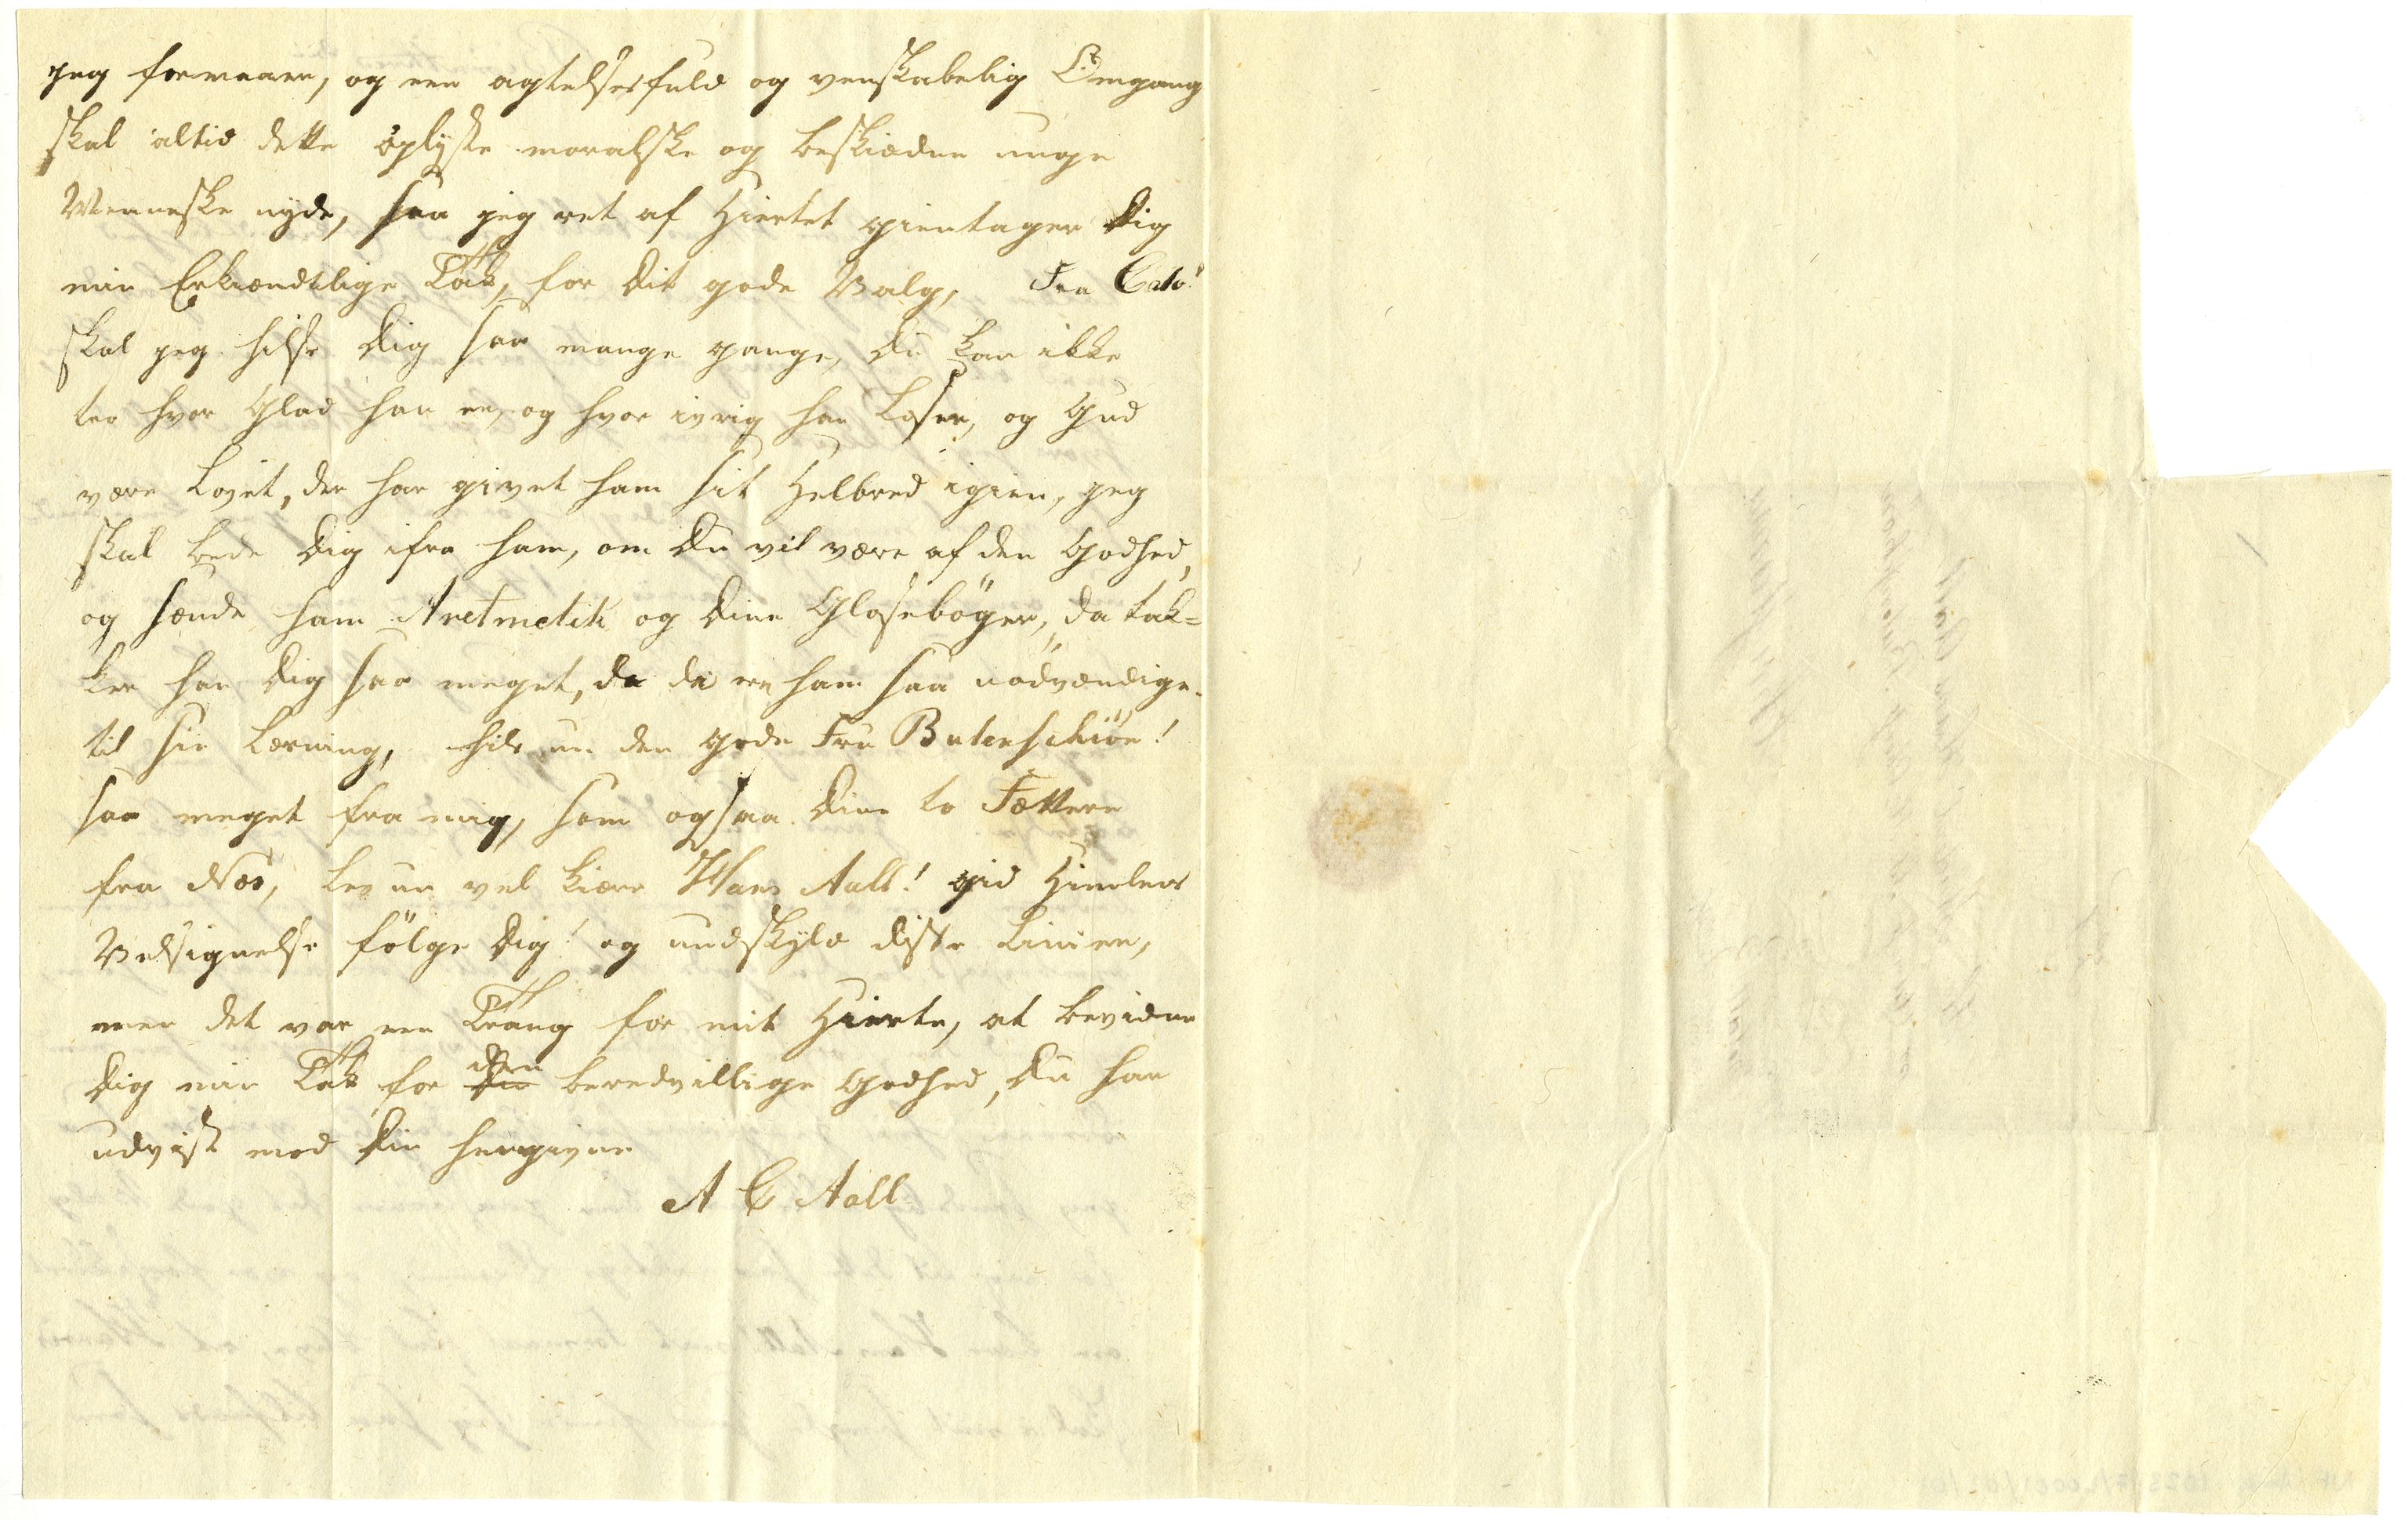 jeg formaaer, og een agtelsesfuld og venskabelig Omgang
skal altid dette oplyste moralske og beskiædne unge
Menneske nyde, saa jeg ret af Hiertet gientager Dig
min Erkiændtlige Tak, for dit gode Valg, Fra Cato!
skal jeg hilse Dig saa mange gange, Du kan ikke
troe hvor Glad han er, og hvor ivrig han Læser, og Gud
være Lovet, der har givet ham sit Helbred igien, jeg
skal bede Dig ifra ham, om Du vil være af den Godhed,
og sænde ham Aretmetik og Dine Glosebøger, da tak=
ker han Dig saa meget, da de er ham saa nødvændige
til sin Lærning, hils nu den gode Fru Butenschiøn!
saa meget fra mig, som ogsaa Dine to Fættere
fra Næs, lev nu vel kiære Hans Aall! gid Himlens
Velsignelse følge Dig! og undskyld disse Linier,
men det var een Trang for mit Hierte, at bevidne
Dig min Tak for Din den beredvillige Godhed, Du har
udvist mod Din hengivne
A C Aall